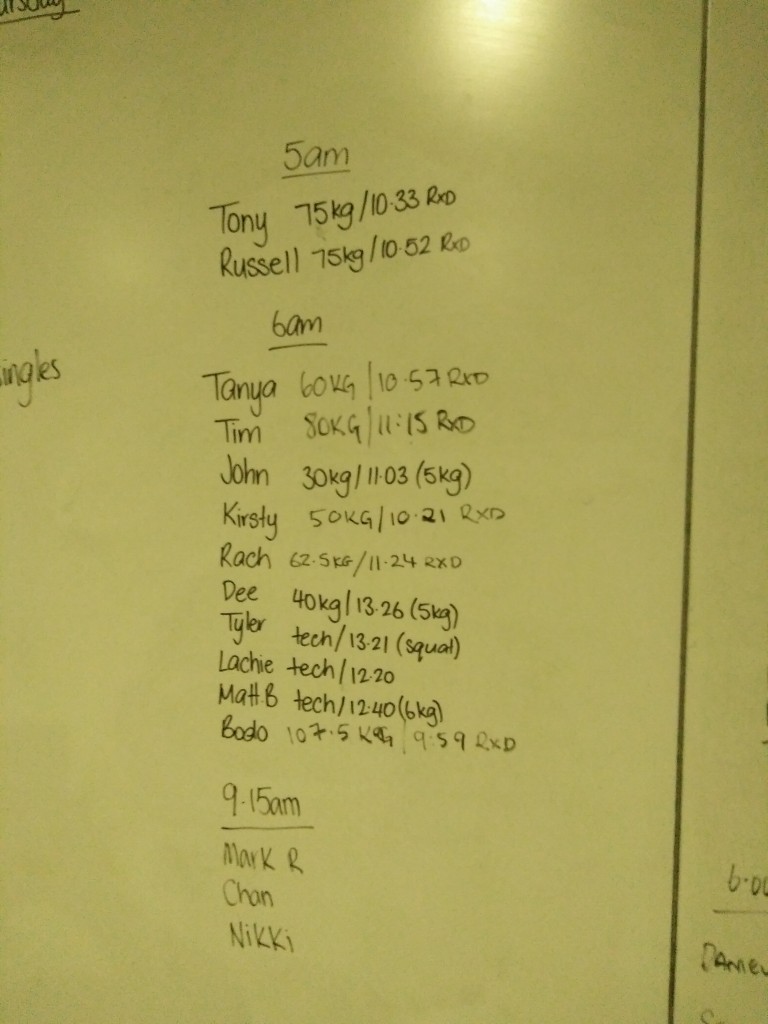 5am
Tony 75kg/10.33 RXD
Russell 75kg/10.52 RXD
6am
Tanya 60KG/10.57 RXD
Tim 80KG/11:15 RXD
John 30kg/11.03 (5kg)
Kirsty 50KG/10.21 RXD
Rach 62.5KG/11.24 RXD
Dee 40kg/13.26 (5kg)
Tyler tech/13.21 (squat)
Lachie tech/12.20
Matt.B tech/12.40 (6kg)
Bodo 107.5 KG/9:59 RXD
9.15am
Mark R
Chan
Nikki
ingles